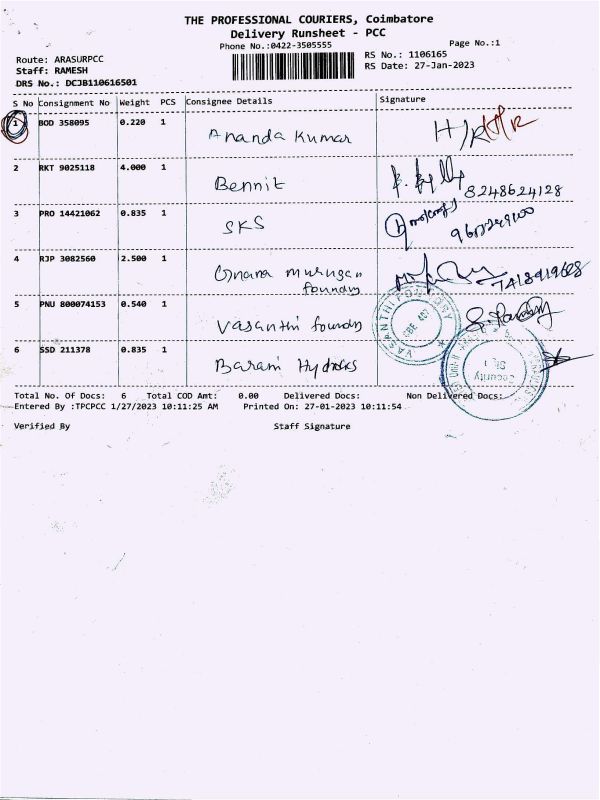 THE PROFESSIONAL COURIERS, Coimbatore
Delivery Runsheet - PCC
Phone No.:0422-3505555
Page No.:1
Route: ARASURPCC
RS No.: 1106165
Staff: RAMESH
RS Date: 27-Jan-2023
DRS No.: DCJB110616501
S No Consignment No Weight PCS Consignee Details Signature
1 BOD 358095 0.220 1 Ananda Kumar
2 RKT 9025118 4.000 1 Bennit 8248624128
3 PRO 14421062 0.835 1 SKS
4 RJP 3082560 2.500 1 Gnana Murugan foundry
5 PNU 800074153 0.540 1 Vasanthi foundry
VASANTHI FOUNDRY
6 SSD 211378 0.835 1 Barani Hydrolks
Security
Total No. Of Docs: 6 Total COD Amt: 0.00 Delivered Docs: Non Delivered Docs:
Entered By :TPCPCC 1/27/2023 10:11:25 AM Printed On: 27-01-2023 10:11:54
Verified By Staff Signature